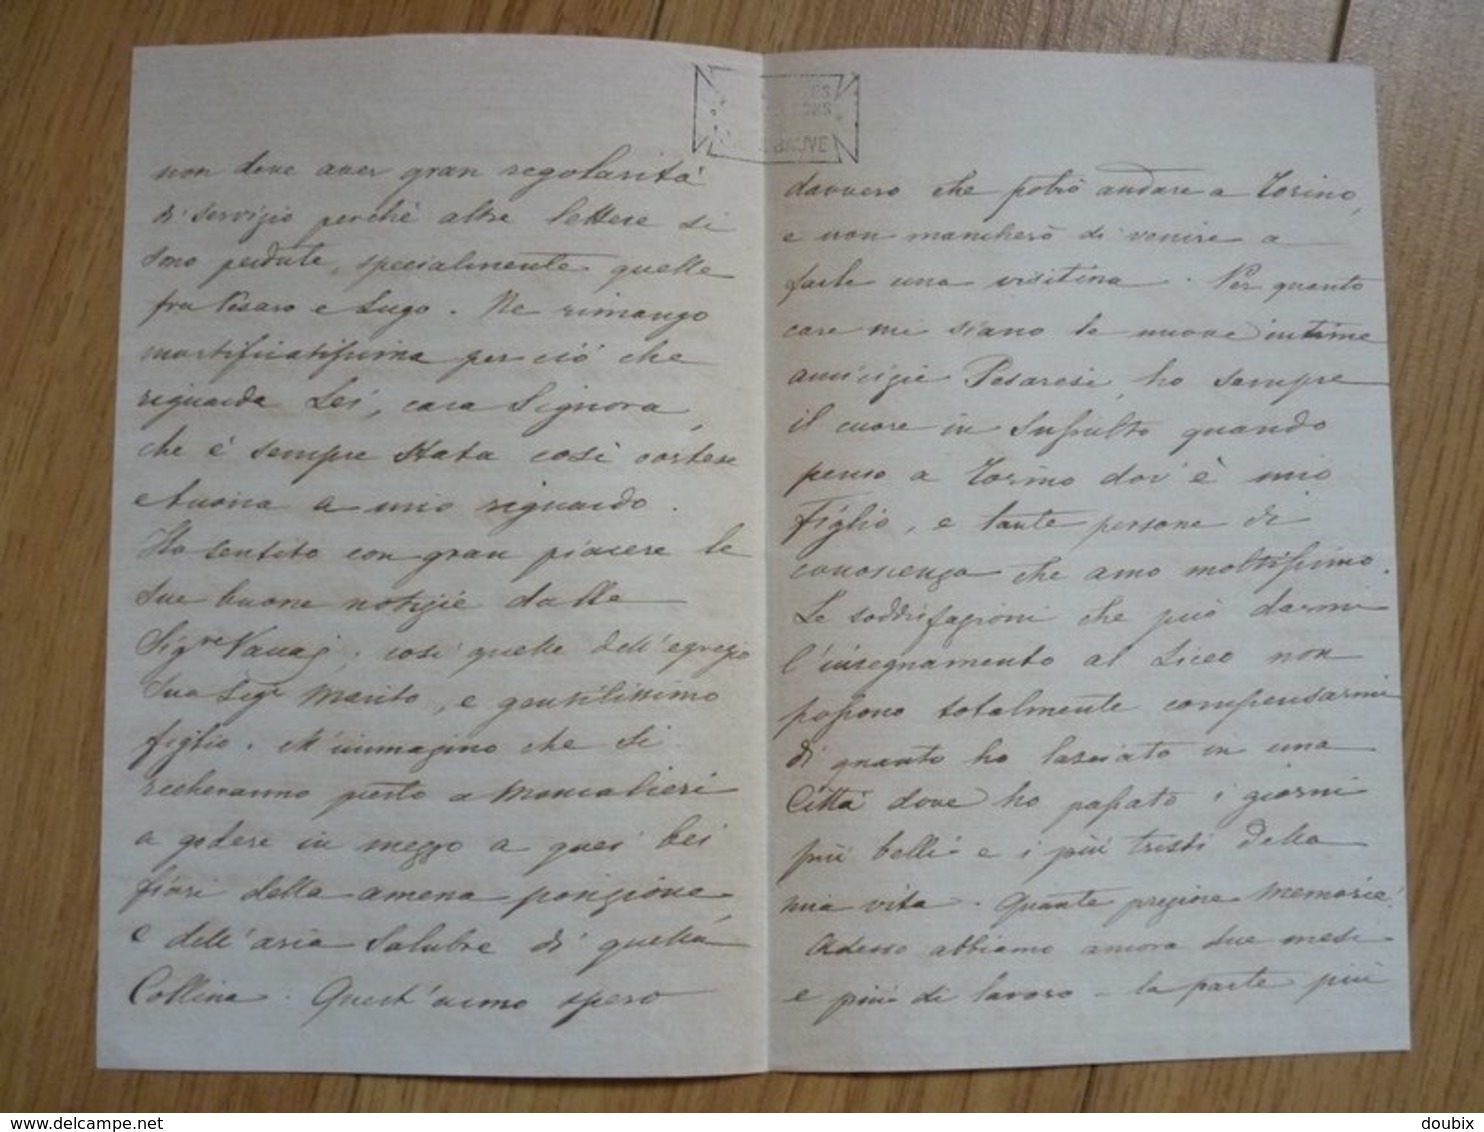 non deve aver gran regolarità
di servizio perchè altre lettere si
sono perdute, specialmente quelle
fra Pesaro e Lugo. Ne rimango
mortificatissima per ciò che
riguarda Lei, cara Signora,
che è sempre stata così cortese
e buona a mio riguardo.
Ho sentito con gran piacere le
sue buone notizie dalle
Sigre; così quelle dell'egregio
suo Sigr Marito, e gentilissimo
figlio. M'immagino che si
recheranno presto a Moncalieri
a godere in mezzo a quei bei
fiori della amena posizione,
e dell'aria salubre di quella
Collina. Quest'anno spero
davvero che potrò andare a Torino,
e non mancherò di venire a
farle una visitina. Per quanto
care mi siano le nuove intime
amicizie Pesaresi, ho sempre
il cuore in sussulto quando
penso a Torino dov'è mio
Figlio, e tante persone di
conoscenza che amo moltissimo.
Le soddisfazioni che può darmi
l'insegnamento al Liceo non
possono totalmente compensarmi
di quanto ho lasciato in una
Città dove ho passato i giorni
più belli e i più tristi della
mia vita. Quante preziose memorie!
Adesso abbiamo ancora due mesi
e più di lavoro – la parte più
BAUVE
delcampe.net
doubix